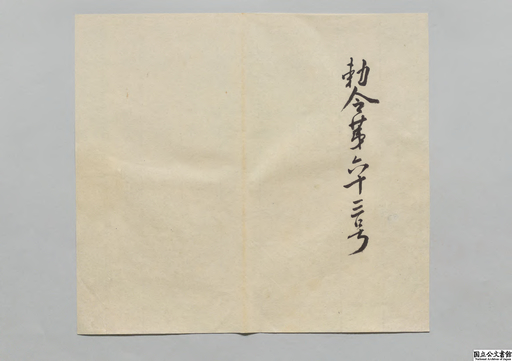 勅令第六十三号
国立公文書館
National Archives of Japan